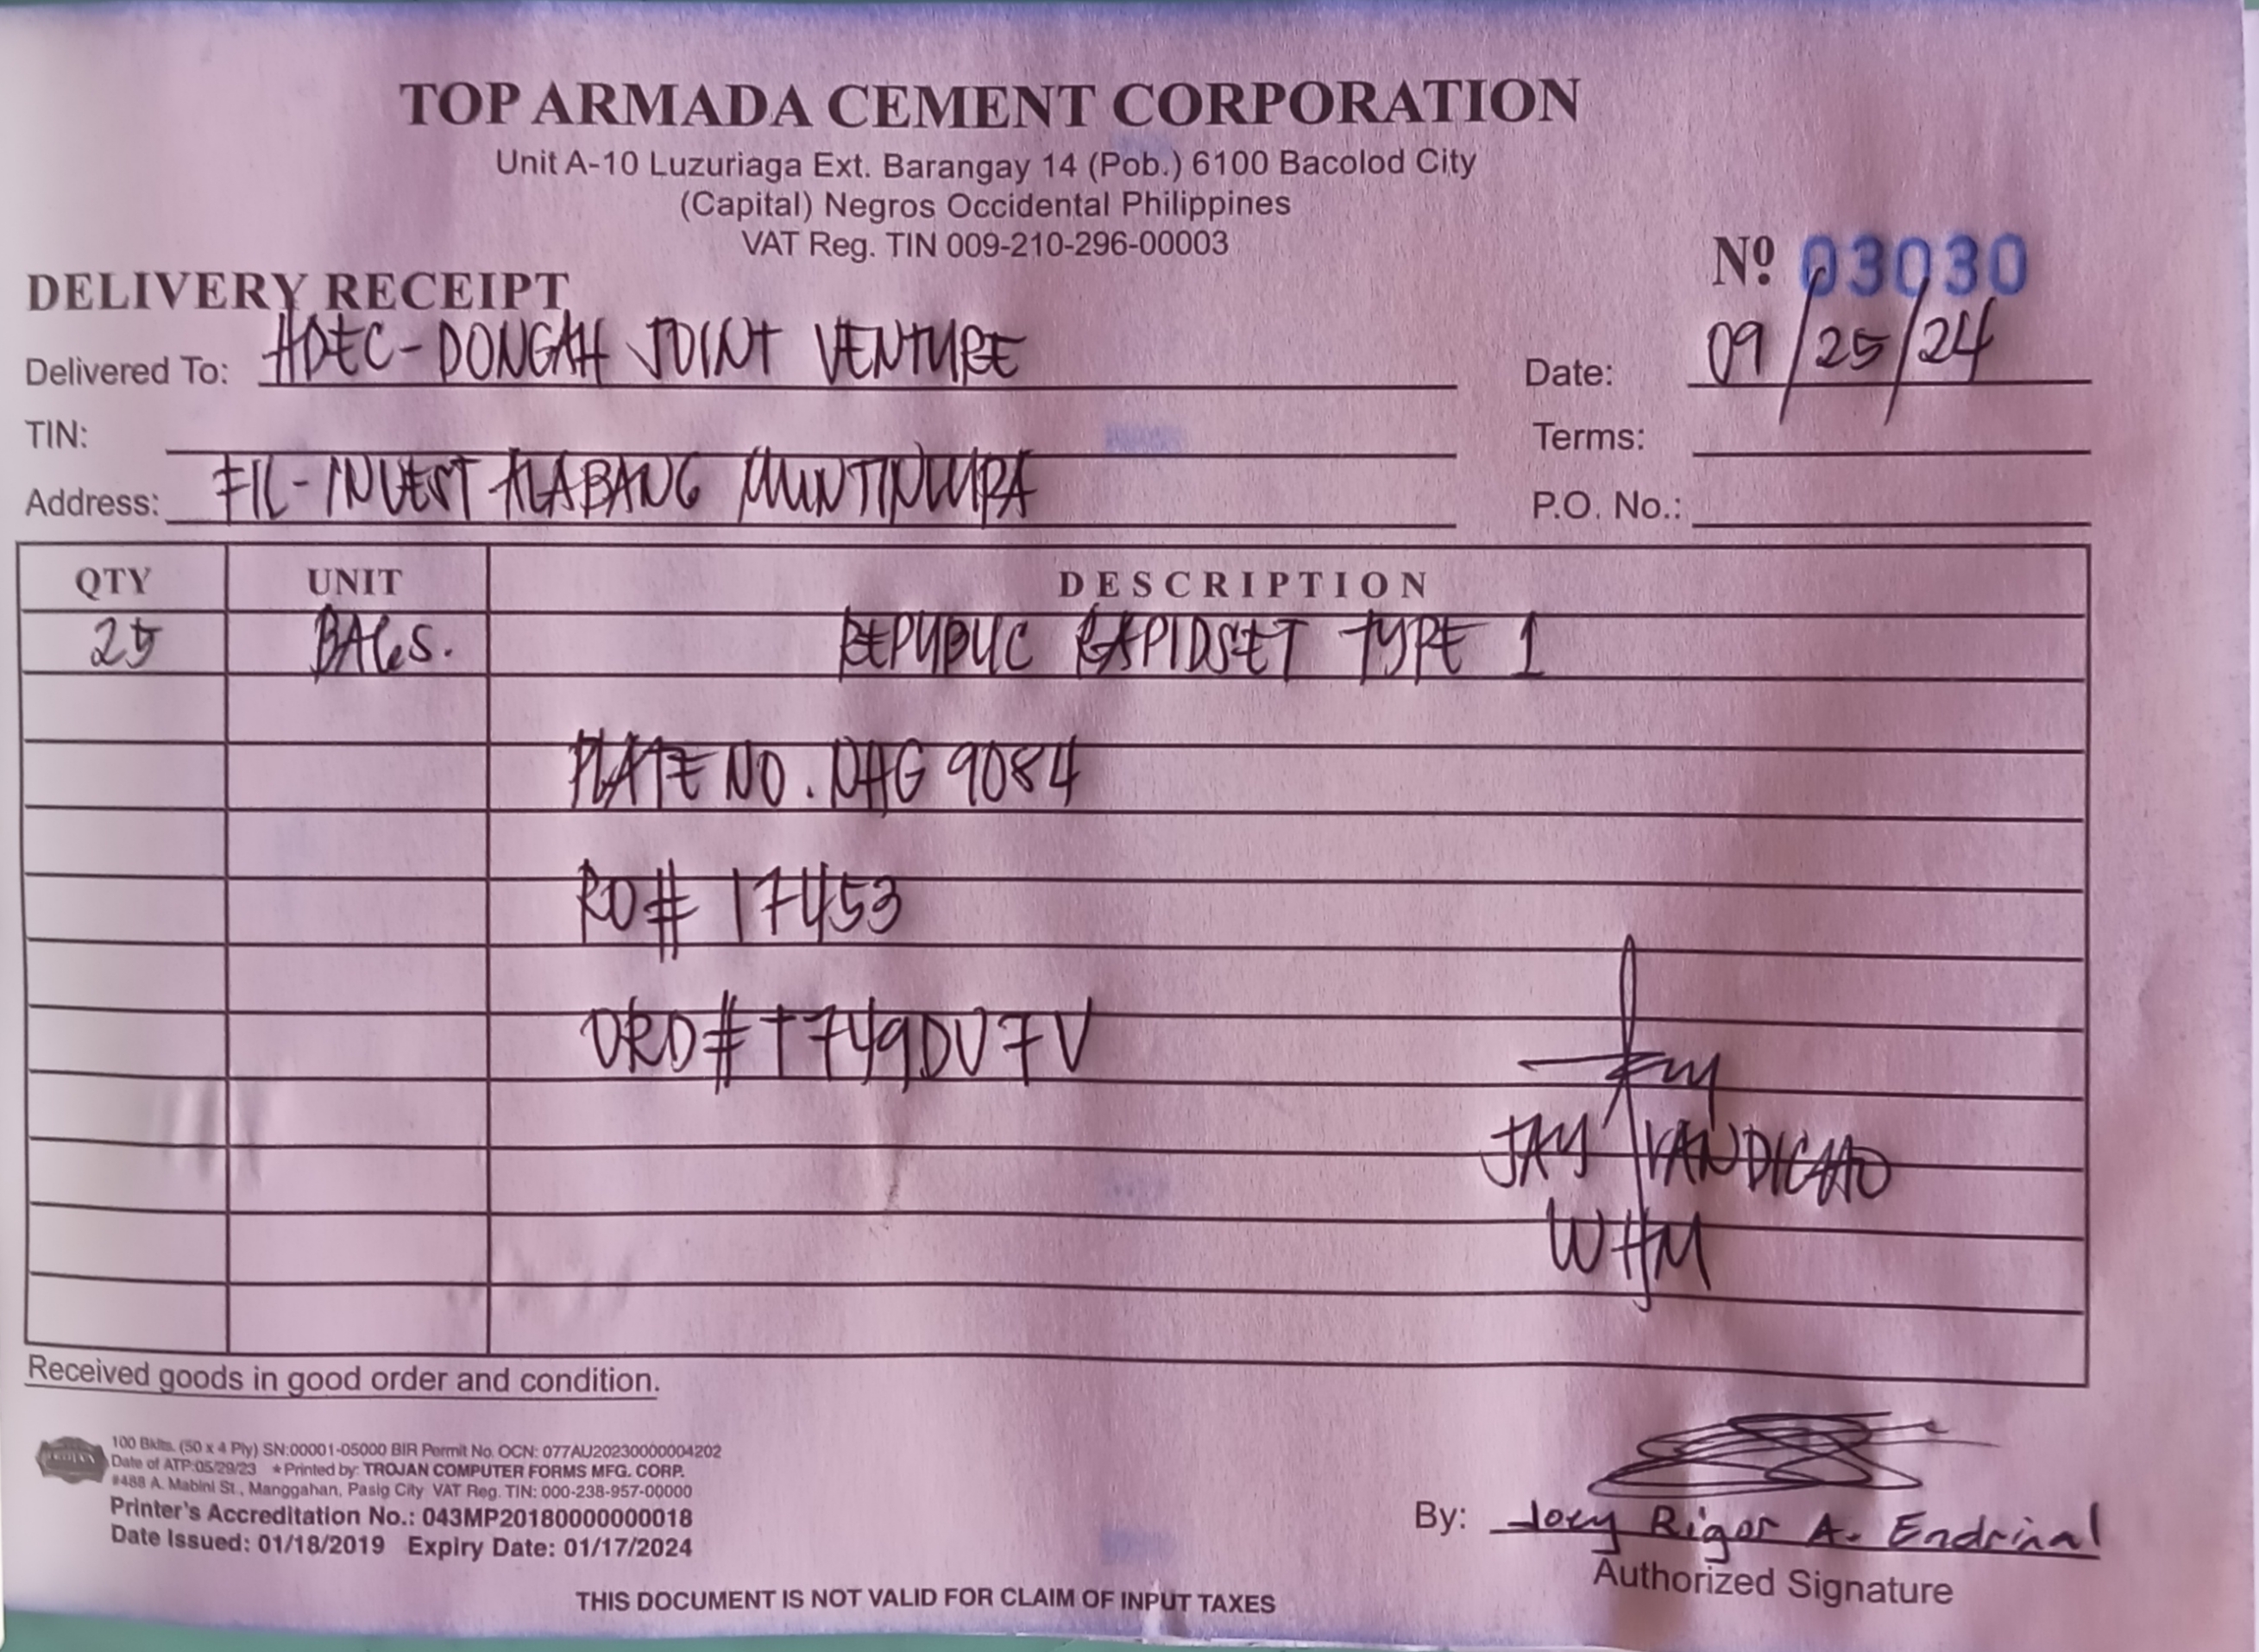 TOP ARMADA CEMENT CORPORATION
Unit A-10 Luzuriaga Ext. Barangay 14 (Pob.) 6100 Bacolod City
(Capital) Negros Occidental Philippines
VAT Reg. TIN 009-210-296-00003
Nº 03030
DELIVERY RECEIPT
Delivered To: HDEC-DONGAH JOINT VENTURE Date: 09/25/24
TIN: Terms:
Address: FIL-INVEST ALABANG MUNTINLUPA P.O. No.:
QTY UNIT DESCRIPTION
25 BAGS. REPUBLIC RAPIDSET TYPE 1
PLATE NO. NAG 9084
RO# 17453
ORD# T749DV7V
JAY
WHM
Received goods in good order and condition.
100 Bklts. (50 x 4 Ply) SN:00001-05000 BIR Permit No. OCN: 077AU20230000004202
Date of ATP:05/29/23 * Printed by: TROJAN COMPUTER FORMS MFG. CORP.
#488 A. Mabini St., Manggahan, Pasig City VAT Reg. TIN: 000-238-957-00000
Printer's Accreditation No.: 043MP20180000000018
Date Issued: 01/18/2019 Expiry Date: 01/17/2024
By: Joey Rigor A. Endrinal
Authorized Signature
THIS DOCUMENT IS NOT VALID FOR CLAIM OF INPUT TAXES